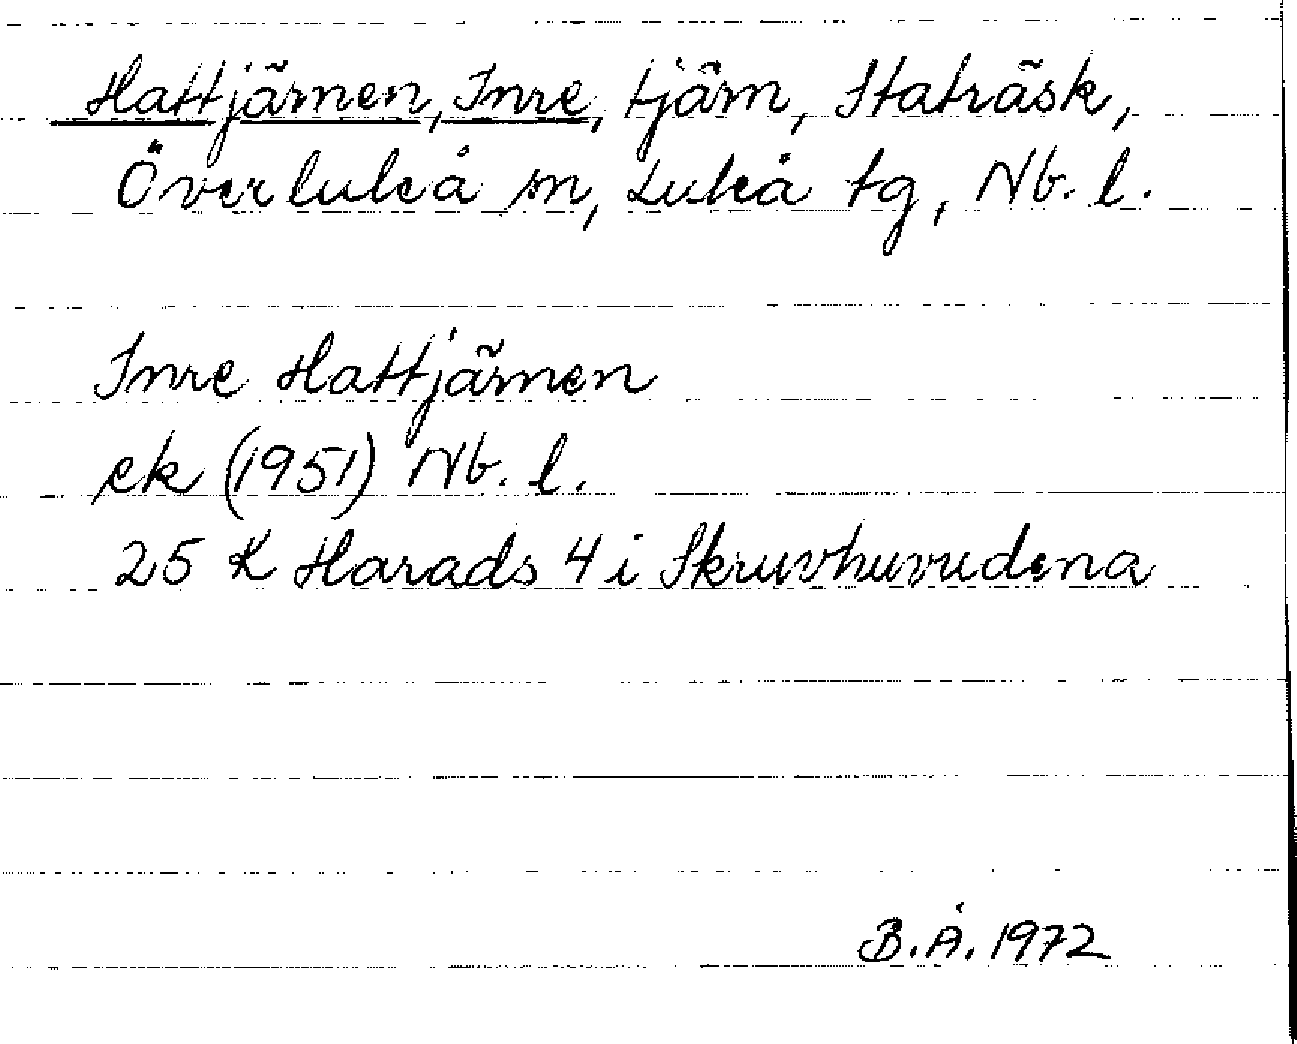 Hattjärnen, Inre, tjärn, Staträsk,
Överluleå sn, Luleå tg, Nb. l.
Inre Hattjärnen
ek (1951) Nb. l.
25 K Harads 4 i Skruvhuvudena
B.Å. 1972